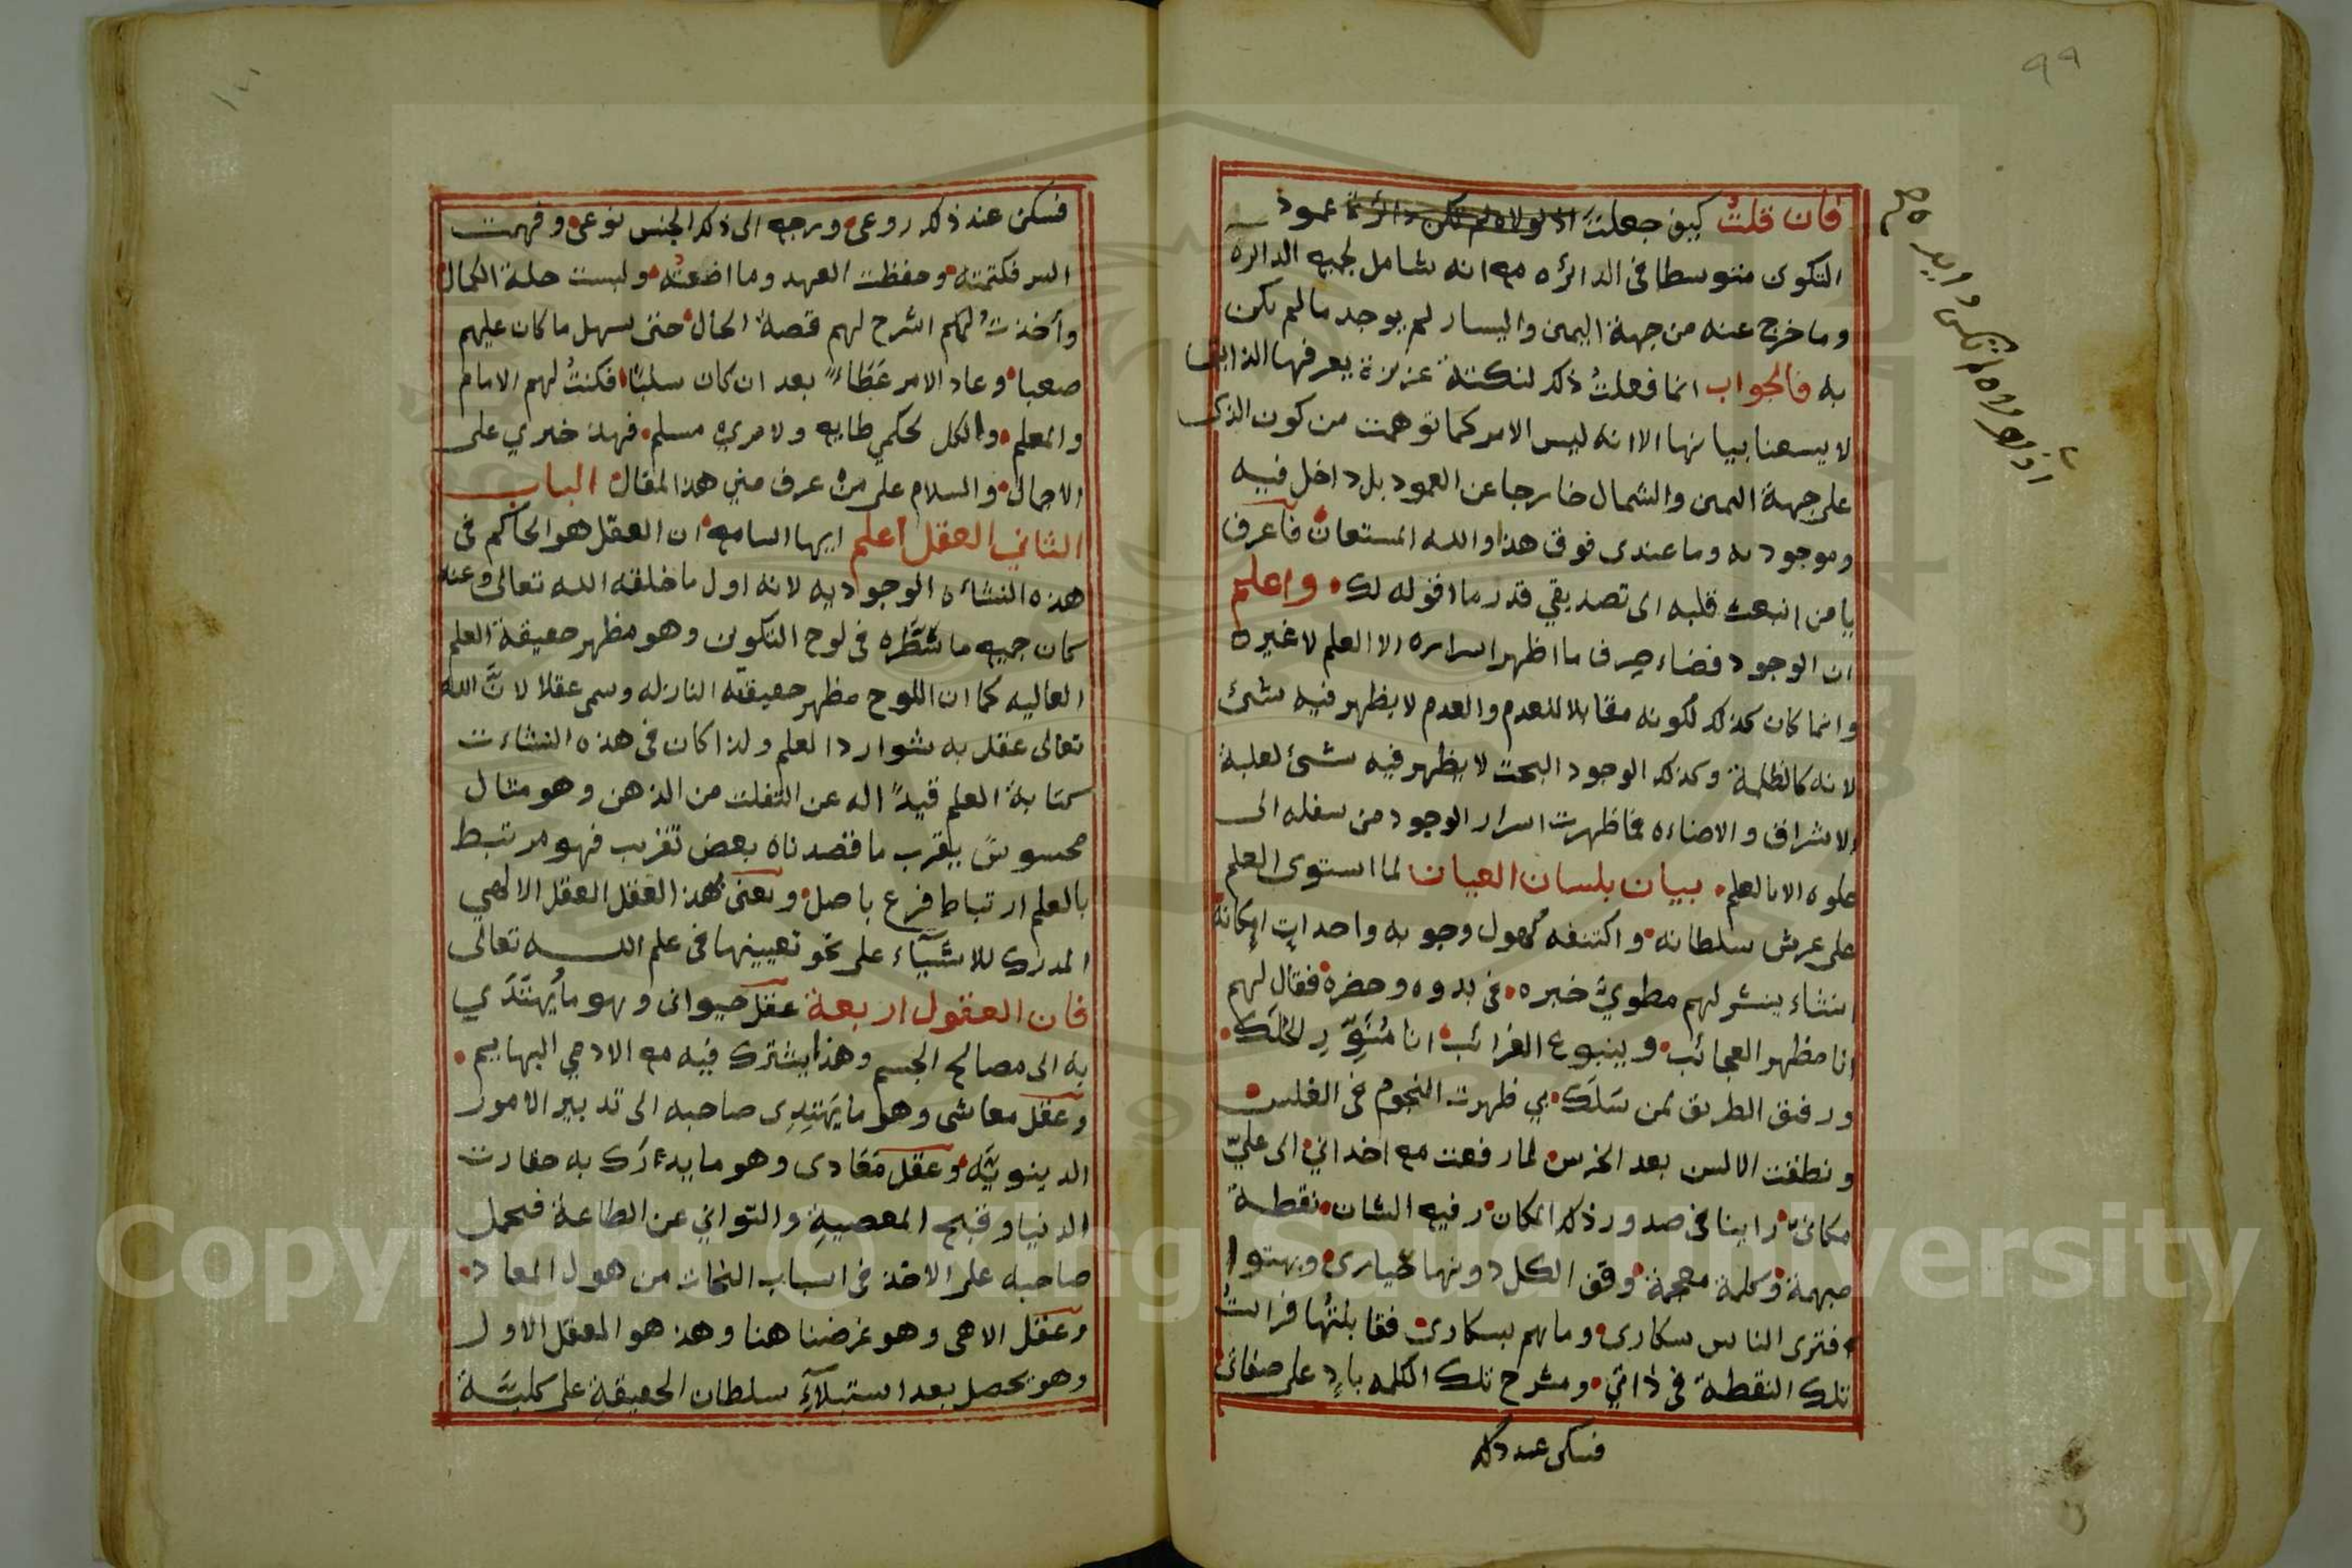 ٩٩
فان قلتُ كيف جعلتَ اذ لولاه لم تكن دائرة عمود
التكوين متوسطا فى الدائره مع انه شامل لجميع الدائرة
وما خرج عنه من جهة اليمين واليسار لم يوجد ما لم يكن
به فالجواب انما فعلتُ ذلك لنكتة عزيزة يعرفها الذايق
لا يسعنا بيانها الا انه ليس الامر كما توهمت من كون الذى
على جهة اليمين والشمال خارجا عن العمود بل داخل فيه
وموجود به وما عندى فوق هذا والله المستعان فاعرف
يا من انبعث قلبه الى تصديقي قدر ما اقوله لك واعلم
ان الوجود فضاء صرف ما اظهر اسراره الا العلم لا غيره
وانما كان كذلك لكونه مقابلا للعدم والعدم لا يظهر فيه شئ
لانه كالظلمة وكذلك الوجود البحت لا يظهر فيه شئ لغلبة
الاشراق والاضاءه فما ظهرت اسرار الوجود من سفله الى
علوه الا بالعلم بيان بلسان العيان لما استوى العلم
على عرش سلطانه واكتنفه كهول وجوبه واحداث امكانه
انشاء ينشر لهم مطويّ خبره فى بدوه وحضره فقال لهم
انا مظهر العجائب وينبوع الغرائب انا مُنَوِّر الحَلَك
ورفيق الطريق لمن سَلَك بي ظهرت النجوم فى الغلس
ونطقت الالسن بعد الخرس لما رفعت مع اخداني الى عليّ
مكانى راينا فى صدور ذلك المكان رفيع الشان نقطة
مبهمة وكلمة معجمة وقف الكل دونها حيارى وبهتوا
فترى الناس سكارى وما هم بسكارى فقابلتُها فرايتُ
تلك النقطة فى ذاتي ومشرح تلك الكلمه بادٍ على صفاتى
فسكن عند ذلك
فسكن عند ذلك روعى ورجع الى ذلك الجنس نوعى وفهمت
السر فكتمته وحفظت العهد وما اضعتُه ولبست حلة الكمال
وأخذتُ لكم اشرح لهم قصة الحال حتى سهل ما كان عليهم
صعبا وعاد الامر عَطَاءً بعد ان كان سلبًا فكنتُ لهم الامام
والمعلم والكل لحكمي طايع ولامري مسلم فهذا خبري على
الاجمال والسلام على من عرف مني هذا المقال الباب
الثاني العقل اعلم ايها السامع ان العقل هو الحاكم فى
هذه النشاءة الوجوديه لانه اول ما خلقه الله تعالى وعنه
كان جميع ما سَطَّره فى لوح التكوين وهو مظهر حقيقة العلم
العاليه كما ان اللوح مظهر حقيقته النازله وسمى عقلا لانَّ الله
تعالى عقل به شوارد العلم ولذا كان فى هذه النشاءت
كتابة العلم قيدًا له عن التفلت من الذهن وهو مثال
محسوس يقرب ما قصدناه بعض تقريب فهو مرتبط
بالعلم ارتباط فرع باصل ونعنى بهذا العقل العقل الالهي
المدرك للاشيآء على نحو تعيينها فى علم الله تعالى
فان العقول اربعة عقل حيوانى وهو ما يُهتَدَي
به الى مصالح الجسم وهذا يشترك فيه مع الادمي البهايم
وعقل معاشى وهو ما يَهتدِى صاحبه الى تدبير الامور
الدينويَّه وعقل مَعَادى وهو ما يدرَك به حقارت
الدنيا وقبح المعصيةِ والتواني عن الطاعة فيحمل
صاحبه على الاخذ فى اسباب النجات من هول المعاد
وعقل الاهى وهو غرضنا هنا وهذا هو العقل الاول
وهو يحصل بعد استيلآءِ سلطان الحقيقةِ على كليَّة
Copyright © King Saud University